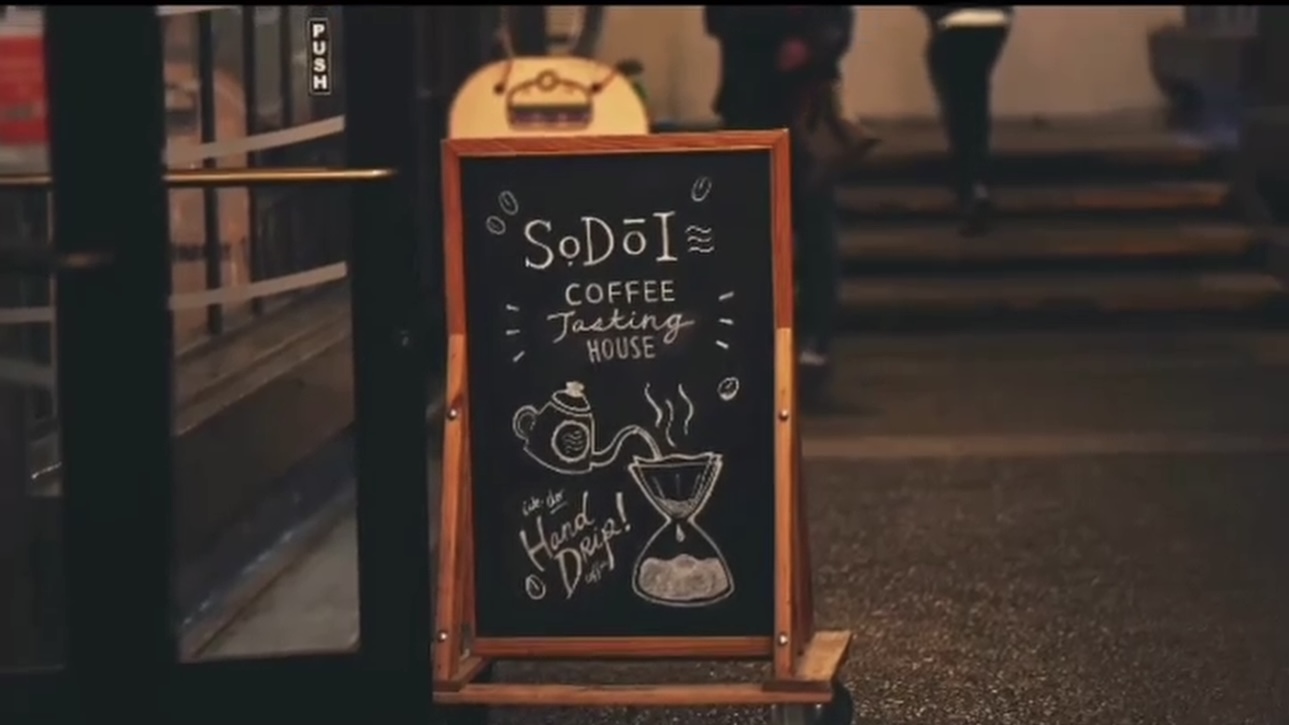 PUSH
SoDōI
COFFEE
Tasting
HOUSE
we do
Hand
Drip!
coffee